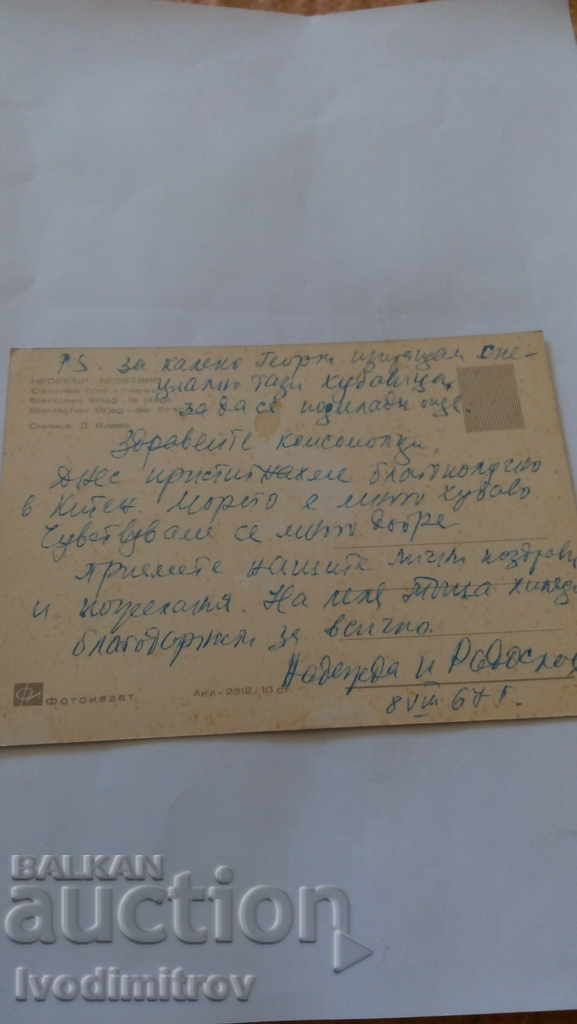 PS. За калеко Георги изпращам спе-
циално тази хубавица,
за да се подмлади още.
Здравейте комсомолци,
Днес пристигнахме благополучно
в Китен. Морето е много хубаво
Чувствуваме се много добре
Приемете нашите лични поздрави
и пожелания. На леля хиляди
благодарности за всичко.
Надежда и Радослав
8 VIII 67 г.
Фотоиздат.
Акл-2312/10 ст
BALKAN
auction
Ivodimitrov